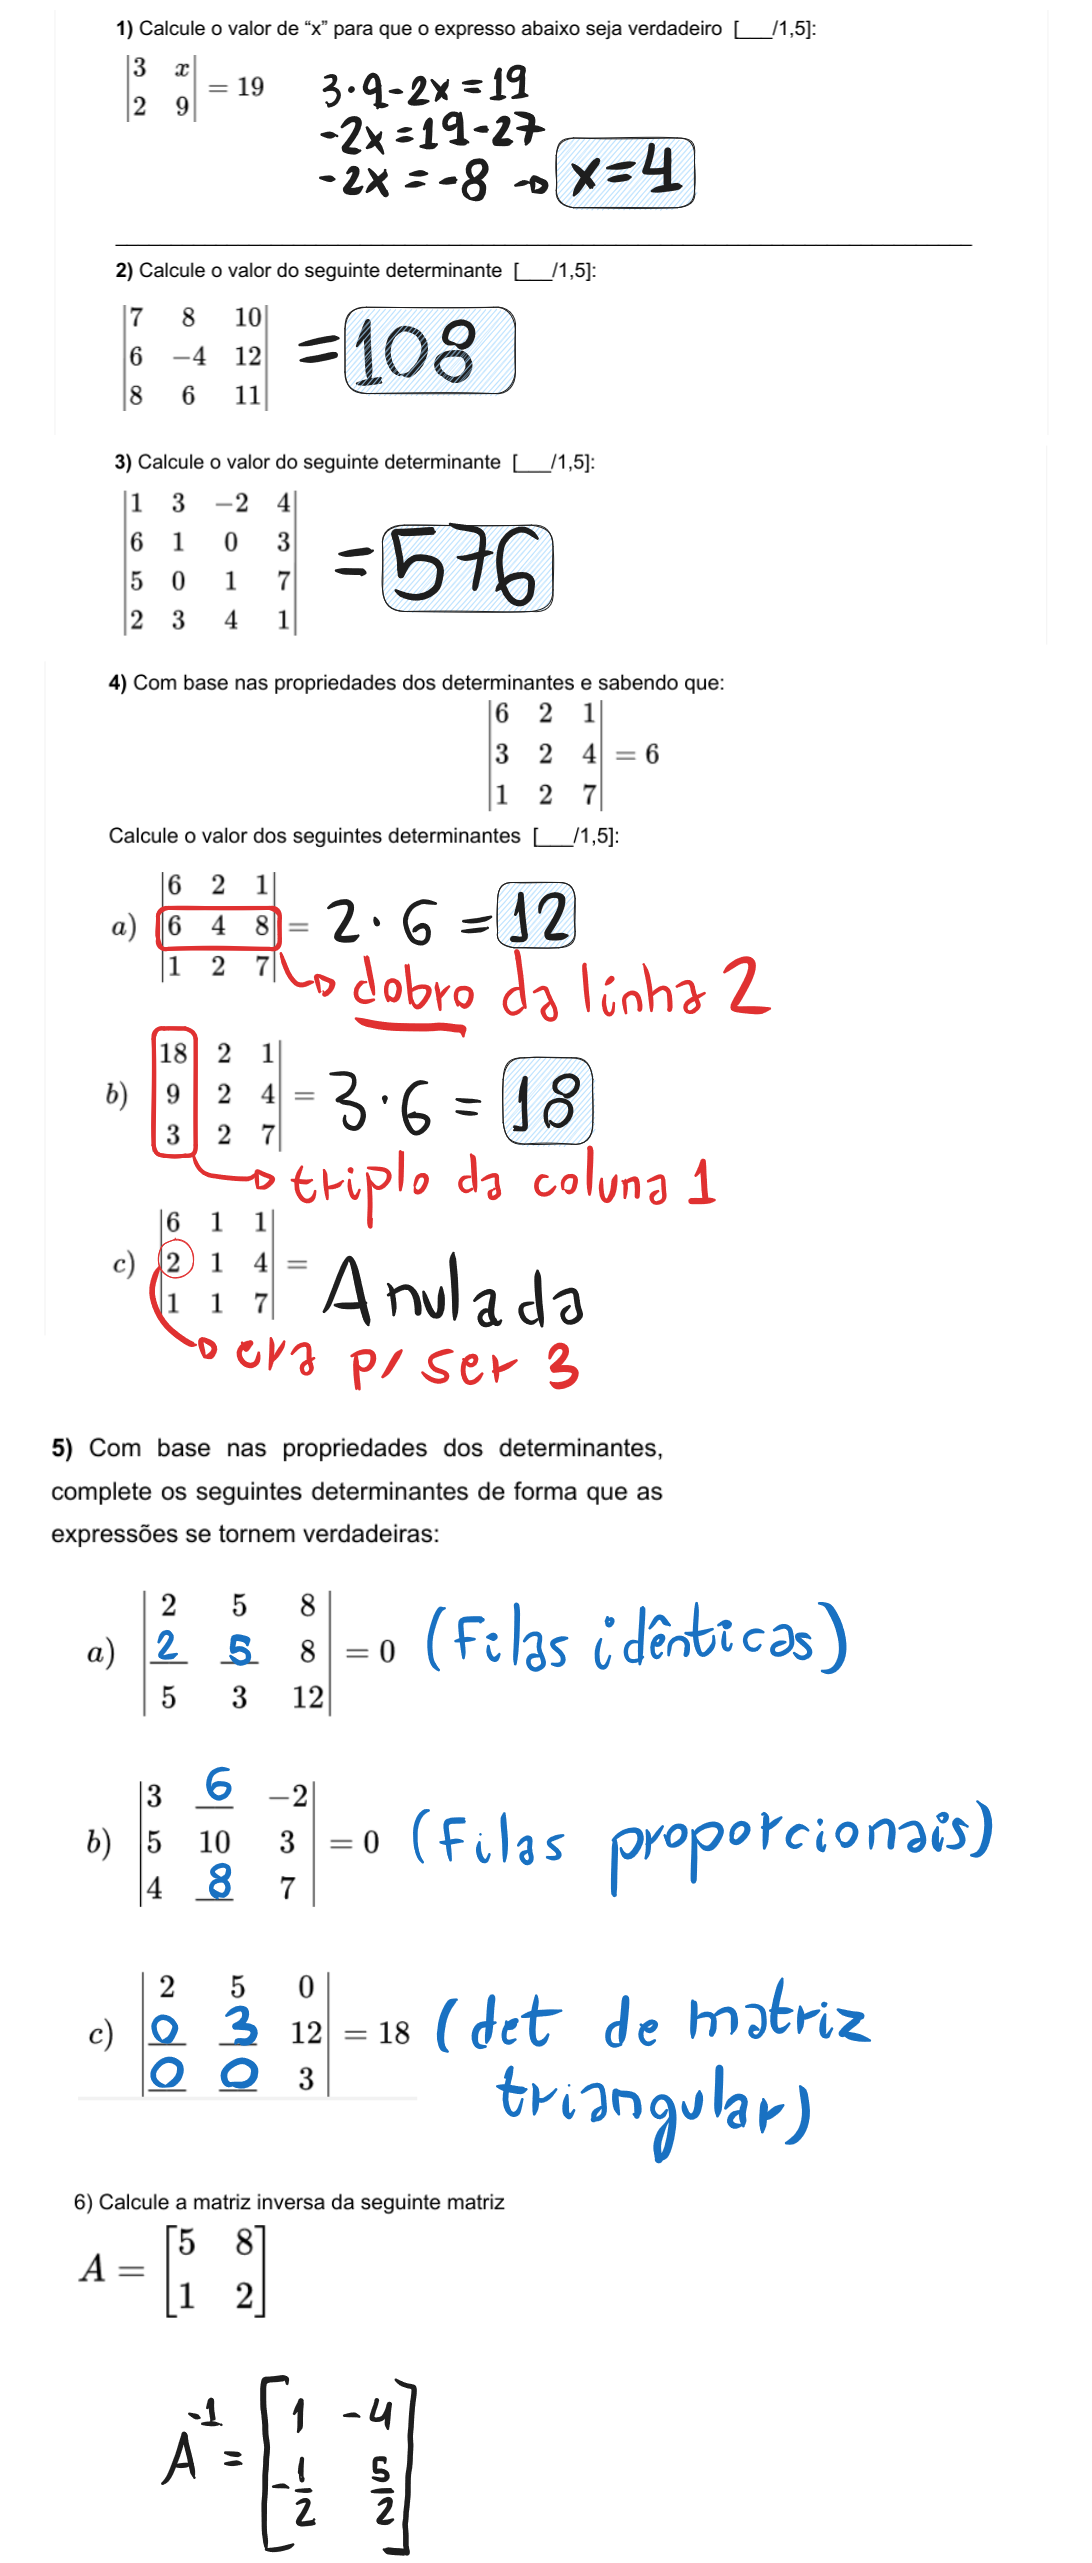 1) Calcule o valor de “x” para que o expresso abaixo seja verdadeiro [___/1,5]:
|3 x|
|2 9| = 19
3·9-2x=19
-2x=19-27
-2x=-8 → x=4
2) Calcule o valor do seguinte determinante [___/1,5]:
|7 8 10|
|6 −4 12| =108
|8 6 11|
3) Calcule o valor do seguinte determinante [___/1,5]:
|1 3 −2 4|
|6 1 0 3|
|5 0 1 7| =576
|2 3 4 1|
4) Com base nas propriedades dos determinantes e sabendo que:
|6 2 1|
|3 2 4| = 6
|1 2 7|
Calcule o valor dos seguintes determinantes [___/1,5]:
|6 2 1|
a) |6 4 8| = 2·6 =12
|1 2 7|
→ dobro da linha 2
|18 2 1|
b) |9 2 4| = 3·6 = 18
|3 2 7|
→ triplo da coluna 1
|6 1 1|
c) |2 1 4| = Anulada
|1 1 7|
→ era p/ ser 3
5) Com base nas propriedades dos determinantes,
complete os seguintes determinantes de forma que as
expressões se tornem verdadeiras:
|2 5 8|
a) |2 5 8| = 0 (Filas idênticas)
|5 3 12|
|3 6 −2|
b) |5 10 3| = 0 (Filas proporcionais)
|4 8 7|
|2 5 0|
c) |0 3 12| = 18 (det de matriz
|0 0 3|
triangular)
6) Calcule a matriz inversa da seguinte matriz
A = [5 8]
[1 2]
A⁻¹ = [1 -4]
[-1/2 5/2]